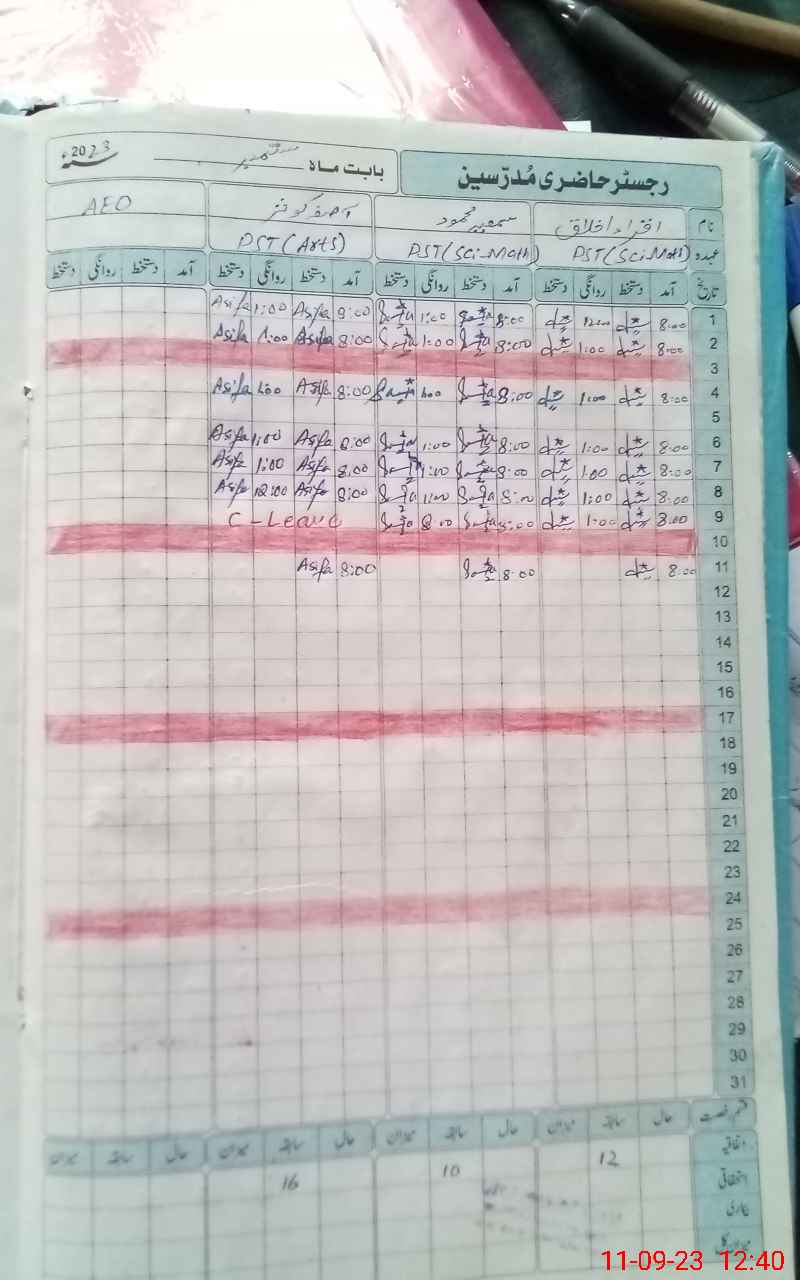 رجسٹر حاضری مُدرّسین بابت ماہ ستمبر 2023ء
نام اقراء اخلاق سمعیہ محمود آصفہ کوثر AEO
عہدہ PST(Sci-Math) PST(Sci-Math) PST(Arts)
تاریخ آمد دستخط روانگی دستخط آمد دستخط روانگی دستخط آمد دستخط روانگی دستخط آمد دستخط روانگی دستخط
1 8:00 12:00 8:00 1:00 8:00 Asifa 1:00 Asifa
2 8:00 1:00 8:00 1:00 8:00 Asifa 1:00 Asifa
3
4 8:00 1:00 8:00 1:00 8:00 Asifa 1:00 Asifa
5
6 8:00 1:00 8:00 1:00 8:00 Asifa 1:00 Asifa
7 8:00 1:00 8:00 1:00 8:00 Asifa 1:00 Asifa
8 8:00 1:00 8:00 1:00 8:00 Asifa 12:00 Asifa
9 8:00 1:00 8:00 8:00 C-Leave
10
11 8:00 8:00 8:00 Asifa
12
13
14
15
16
17
18
19
20
21
22
23
24
25
26
27
28
29
30
31
قسم رخصت حال سابقہ میزان حال سابقہ میزان حال سابقہ میزان حال سابقہ میزان
اتفاقیہ 12 10 16
استحقاقی
بیماری
میزان کل
11-09-23 12:40